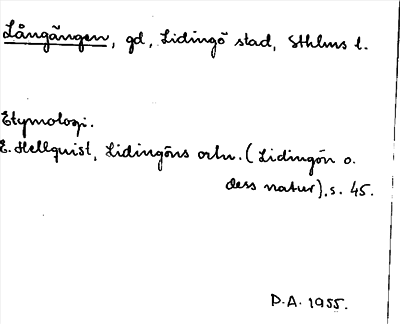 Långängen, gd, Lidingö stad, Sthlms l.
Etymologi.
E. Hellquist, Lidingöns ortn. (Lidingön o.
dess natur), s. 45.
D.A. 1955.